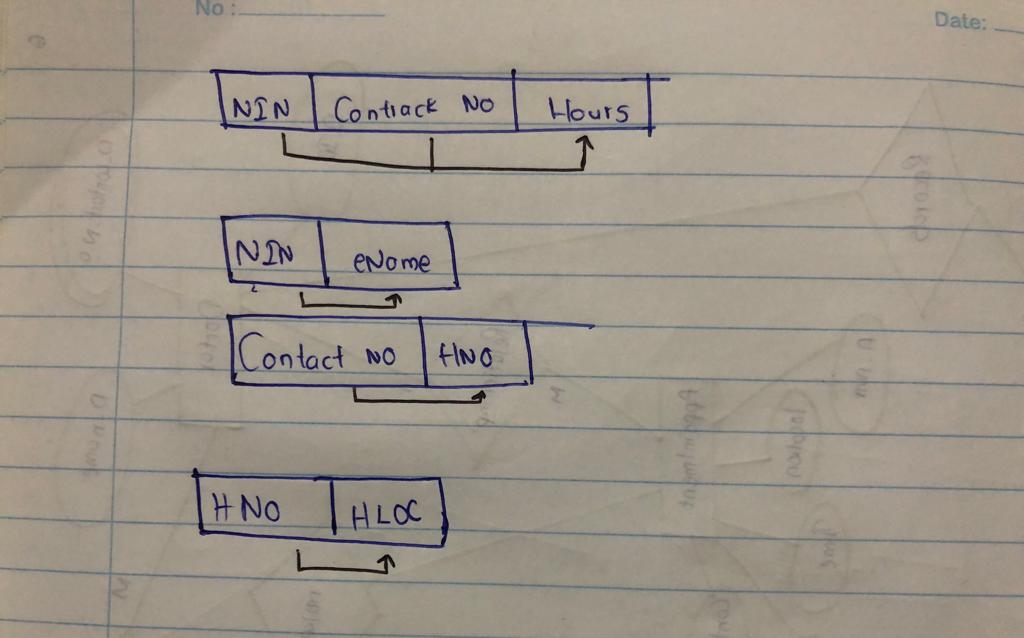 No :
Date:
NIN Contrack NO Hours
NIN eName
Contact NO HNO
HNO HLOC